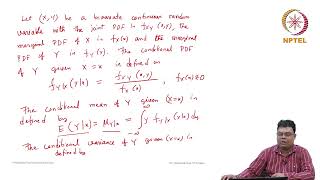 Let (X,Y) be a bivariate continuous random
variable with the joint PDF in fxy (x,y), the
marginal PDF of X in fx(x) and the marginal
PDF of Y in fy(y). The conditional PDF
of Y given X=x is defined as
fY|x(y|x) = fxy (x,y) / fx(x) , fx(x)≠0
The conditional mean of Y given (X=x) is
defined by
E(Y|x) = μY|x = ∫ y fY|x(y|x) dy
The conditional variance of Y given (X=x) is
defined by
NPTEL